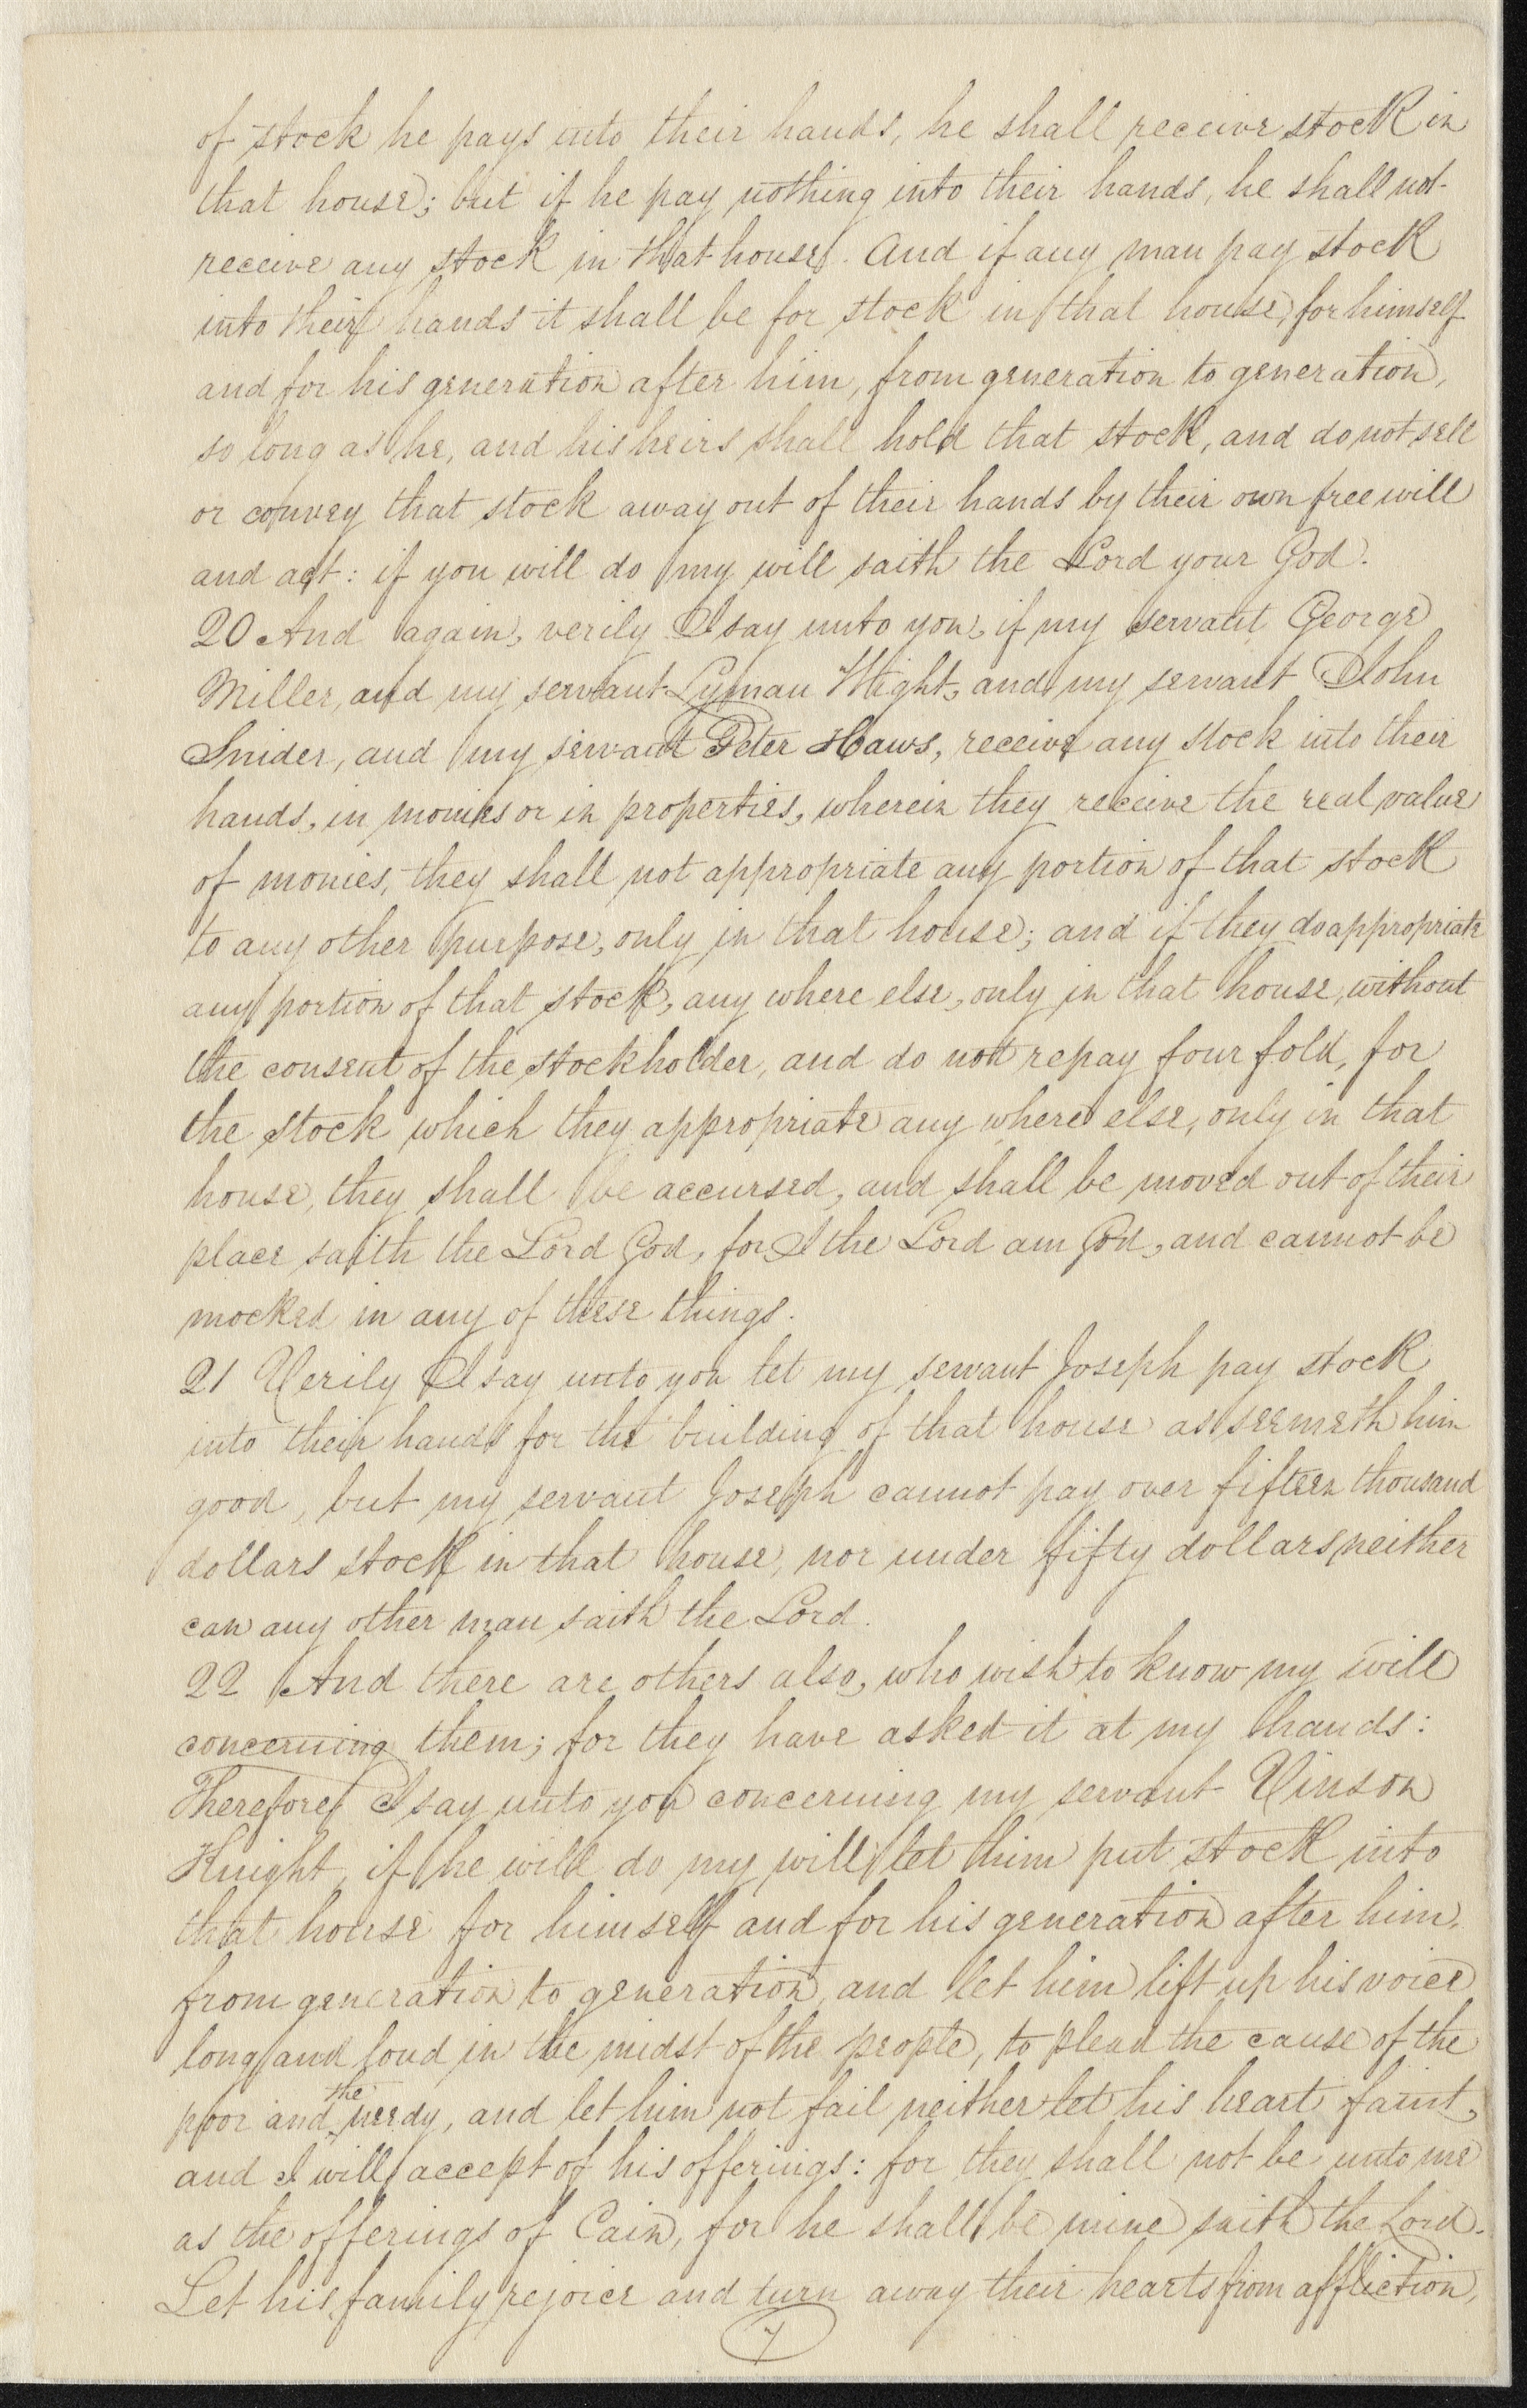 of stock he pays into their hands, he shall receive stock in
that house; but if he pay nothing into their hands, he shall not
receive any stock in that house. And if any man pay stock
into their hands it shall be for stock in that house, for himself
and for his generation after him, from generation to generation,
so long as he, and his heirs shall hold that stock, and do not sell
or convey that stock away out of their hands by their own free will
and act: if you will do my will saith the Lord your God.
20 And again, verily I say unto you, if my servant George
Miller, and my servant Lyman Wight, and my servant John
Snider, and my servant Peter Haws, receive any stock into their
hands, in monies or in properties, wherein they receive the real value
of monies, they shall not appropriate any portion of that stock
to any other purpose, only in that house; and if they do appropriate
any portion of that stock, any where else, only in that house, without
the consent of the stockholder, and do not repay four fold, for
the stock which they appropriate any where else, only in that
house, they shall be accursed, and shall be moved out of their
place saith the Lord God, for I the Lord am God, and cannot be
mocked in any of these things.
21 Verily I say unto you let my servant Joseph pay stock
into their hands for the building of that house as seemeth him
good, but my servant Joseph cannot pay over fifteen thousand
dollars stock in that house, nor under fifty dollars neither
can any other man saith the Lord.
22 And there are others also, who wish to know my will
concerning them; for they have asked it at my hands:
Therefore, I say unto you concerning my servant Vinson
Knight, if he will do my will, let him put stock into
that house for himself and for his generation after him,
from generation to generation, and let him lift up his voice
long and loud in the midst of the people, to plead the cause of the
poor and the needy, and let him not fail neither let his heart faint,
and I will accept of his offerings: for they shall not be unto me
as the offerings of Cain, for he shall be mine saith the Lord.
Let his family rejoice and turn away their hearts from affliction,
7